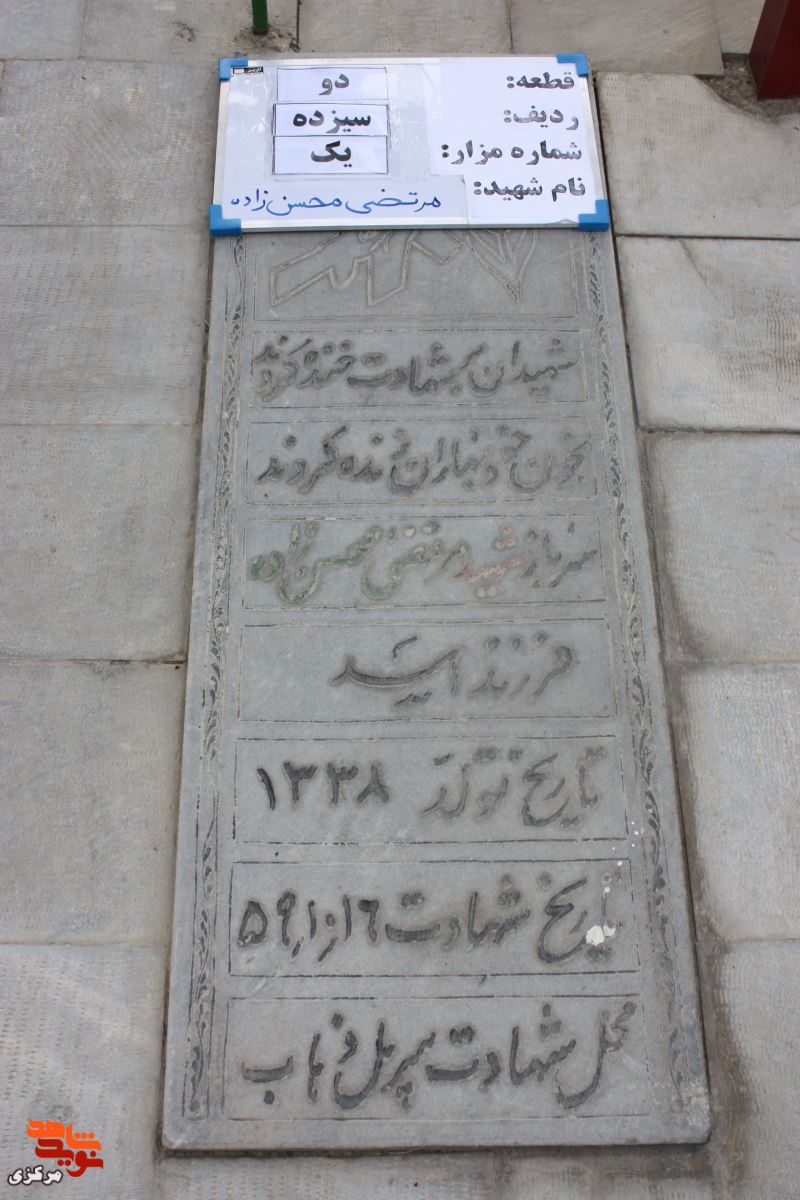 قطعه: دو
ردیف: سیزده
شماره مزار: یک
نام شهید: مرتضی محسن زاده
شهیدان بشهادت خنده کردند
بخون خود بهاران زنده کردند
سرباز شهید مرتضی محسن زاده
فرزند اسد
تاریخ تولد ۱۳۳۸
تاریخ شهادت ۵۹٫۱۰٫۱۶
محل شهادت سرپل ذهاب
نوید شاهد
مرکزی